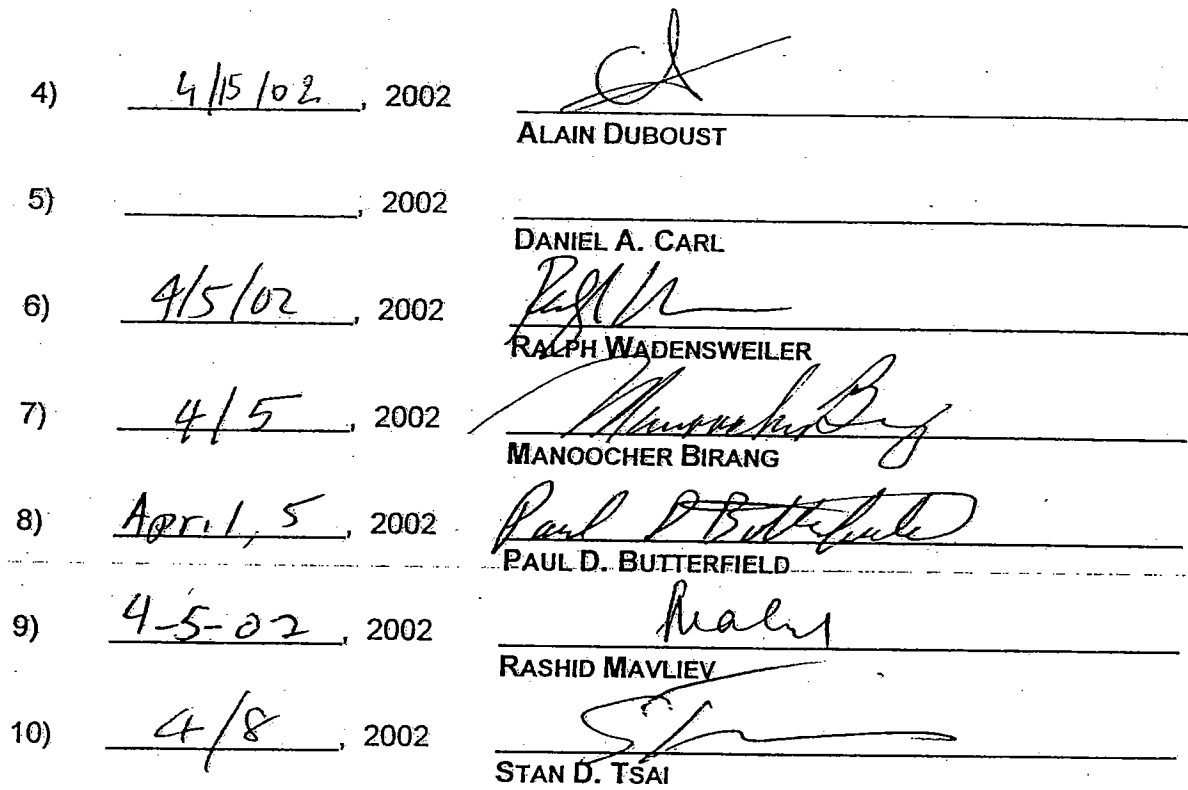 4) 4/15/02, 2002
ALAIN DUBOUST
5) , 2002
DANIEL A. CARL
6) 4/5/02, 2002
RALPH WADENSWEILER
7) 4/5, 2002 Manoocher Birang
MANOOCHER BIRANG
8) April, 5, 2002 Paul D Butterfield
PAUL D. BUTTERFIELD
9) 4-5-02, 2002
RASHID MAVLIEV
10) 4/8, 2002
STAN D. TSAI